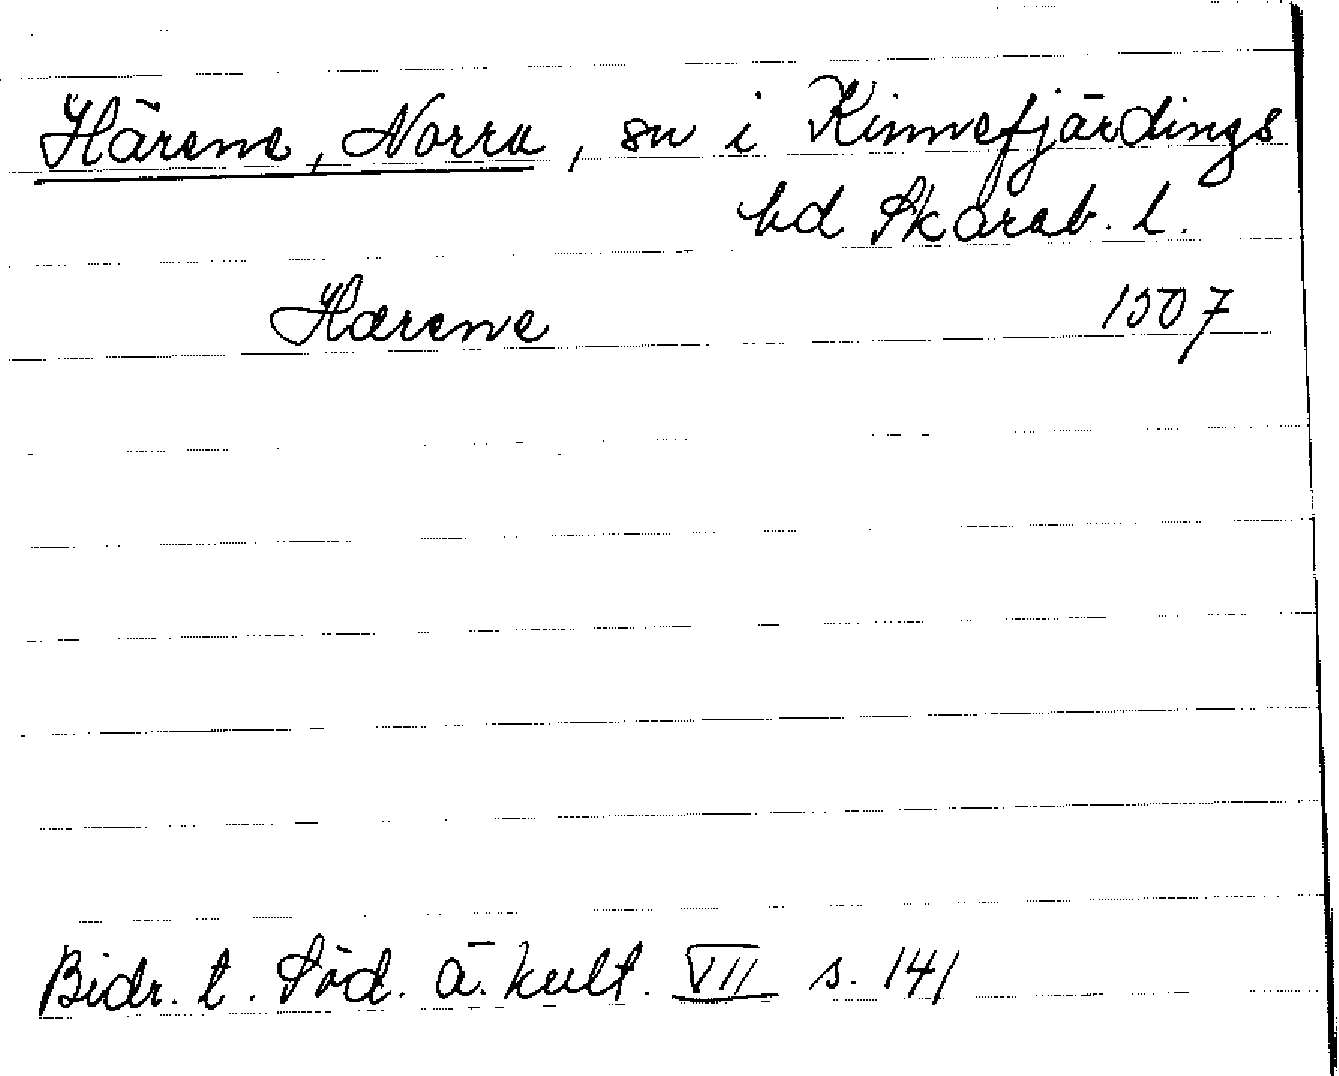 Härene, Norra, sn i Kinnefjärdings
hd Skarab. l.
Härene 1507
Bidr. t. Söd. ä. kult. VII s. 141